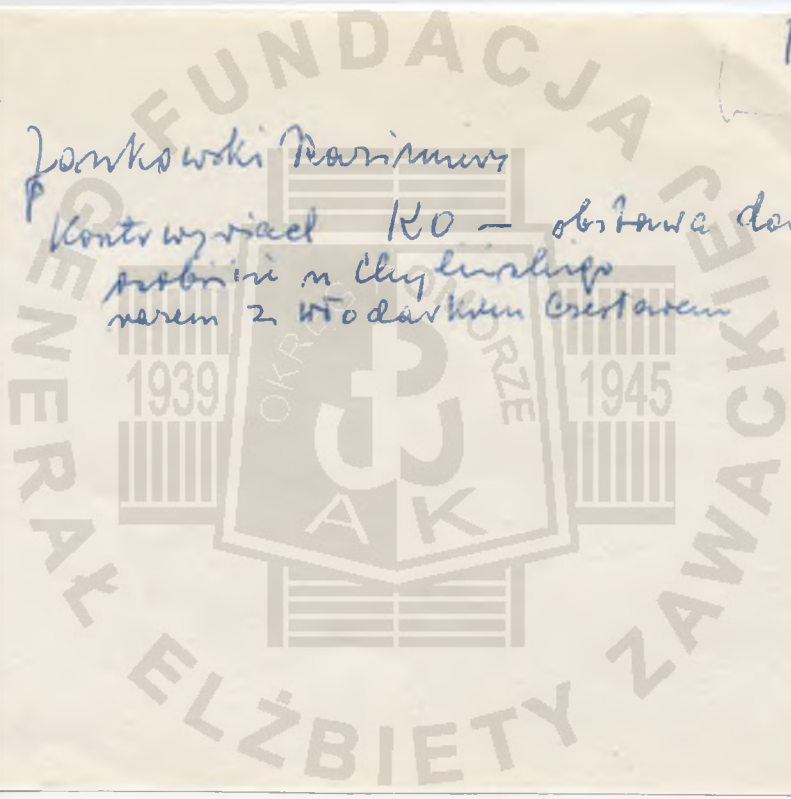 Jankowski Kazimierz
P
Kontrwywiad KO — obstawa
osobista u Chylińskiego
razem z Włodarkiem Czesławem
FUNDACJA GENERAŁ ELŻBIETY ZAWACKIEJ
OKRĘG POMORZE
1939 1945
AK